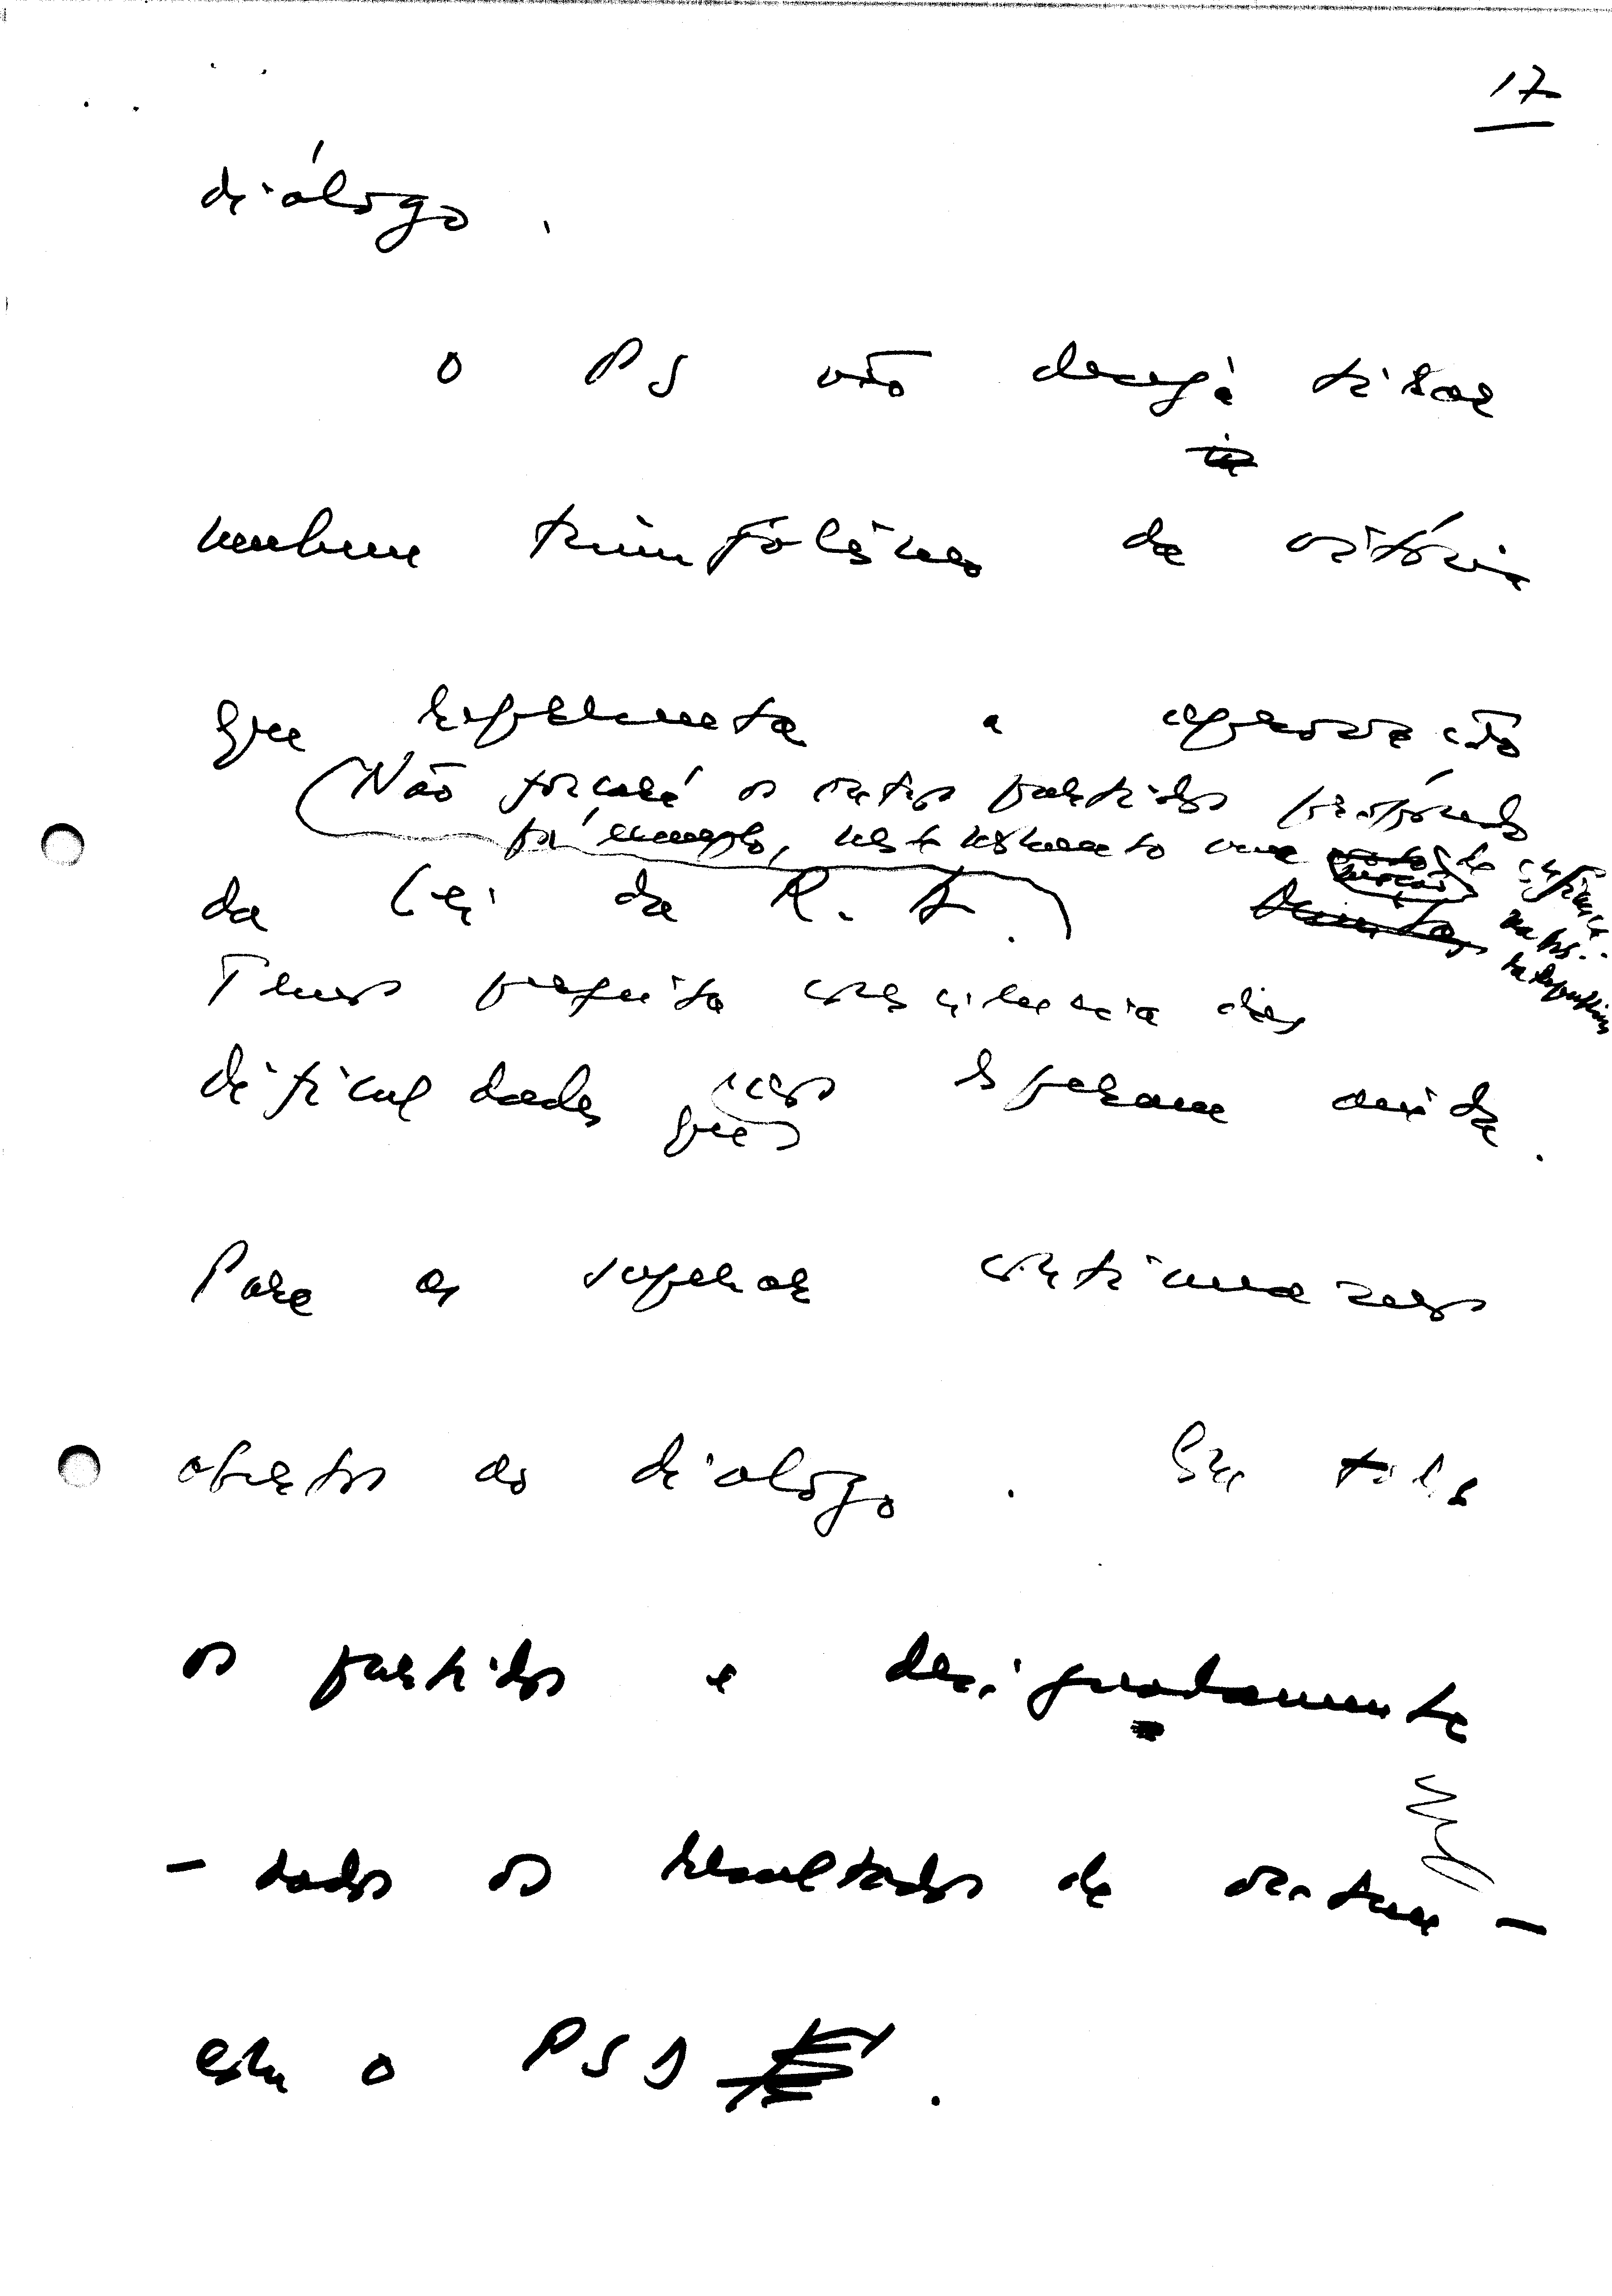 17
diálogo.
O PS não deseja tirar
nenhum triunfalismo da vitória
que representa a aprovação
Não forçará os outros partidos propondo
por exemplo, neste momento uma moção de confiança
da Lei da R. A.
Temos perfeita consciência das
dificuldades que nos esperam ainda.
Para as superar continuamos
abertos ao diálogo. Com todos
os partidos e designadamente
- dados os resultados de ontem -
com o PSD.